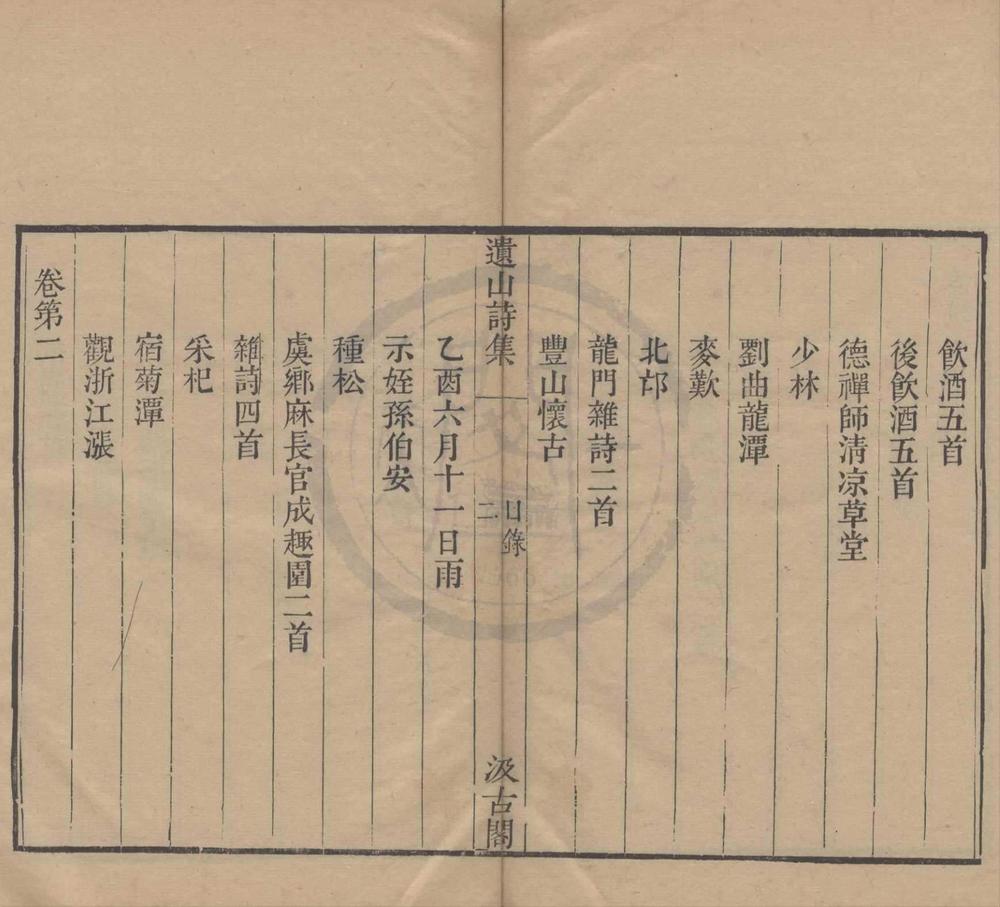 飲酒五首
後飲酒五首
德禪師淸凉草堂
少林
劉曲龍潭
麥歎
北邙
龍門雜詩二首
豐山懷古
遺山詩集
目錄
二
汲古閣
乙酉六月十一日雨
示姪孫伯安
種松
虞鄉麻長官成趣園二首
雜詩四首
采杞
宿菊潭
觀浙江漲
卷第二